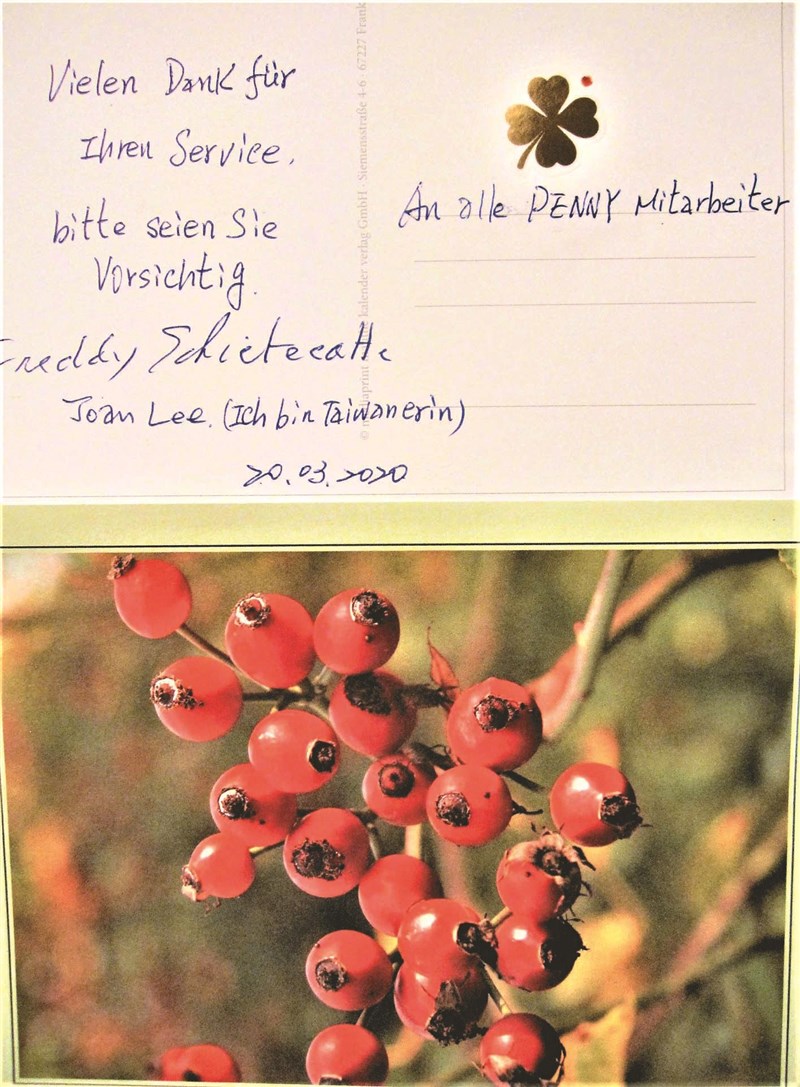 Vielen Dank für
Ihren Service,
bitte seien Sie
Vorsichtig.
Freddy Schietecatte
Joan Lee. (Ich bin Taiwanerin)
20.03.2020
kalender verlag GmbH · Siemensstraße 4-6 · 67227 Frank
An alle PENNY Mitarbeiter